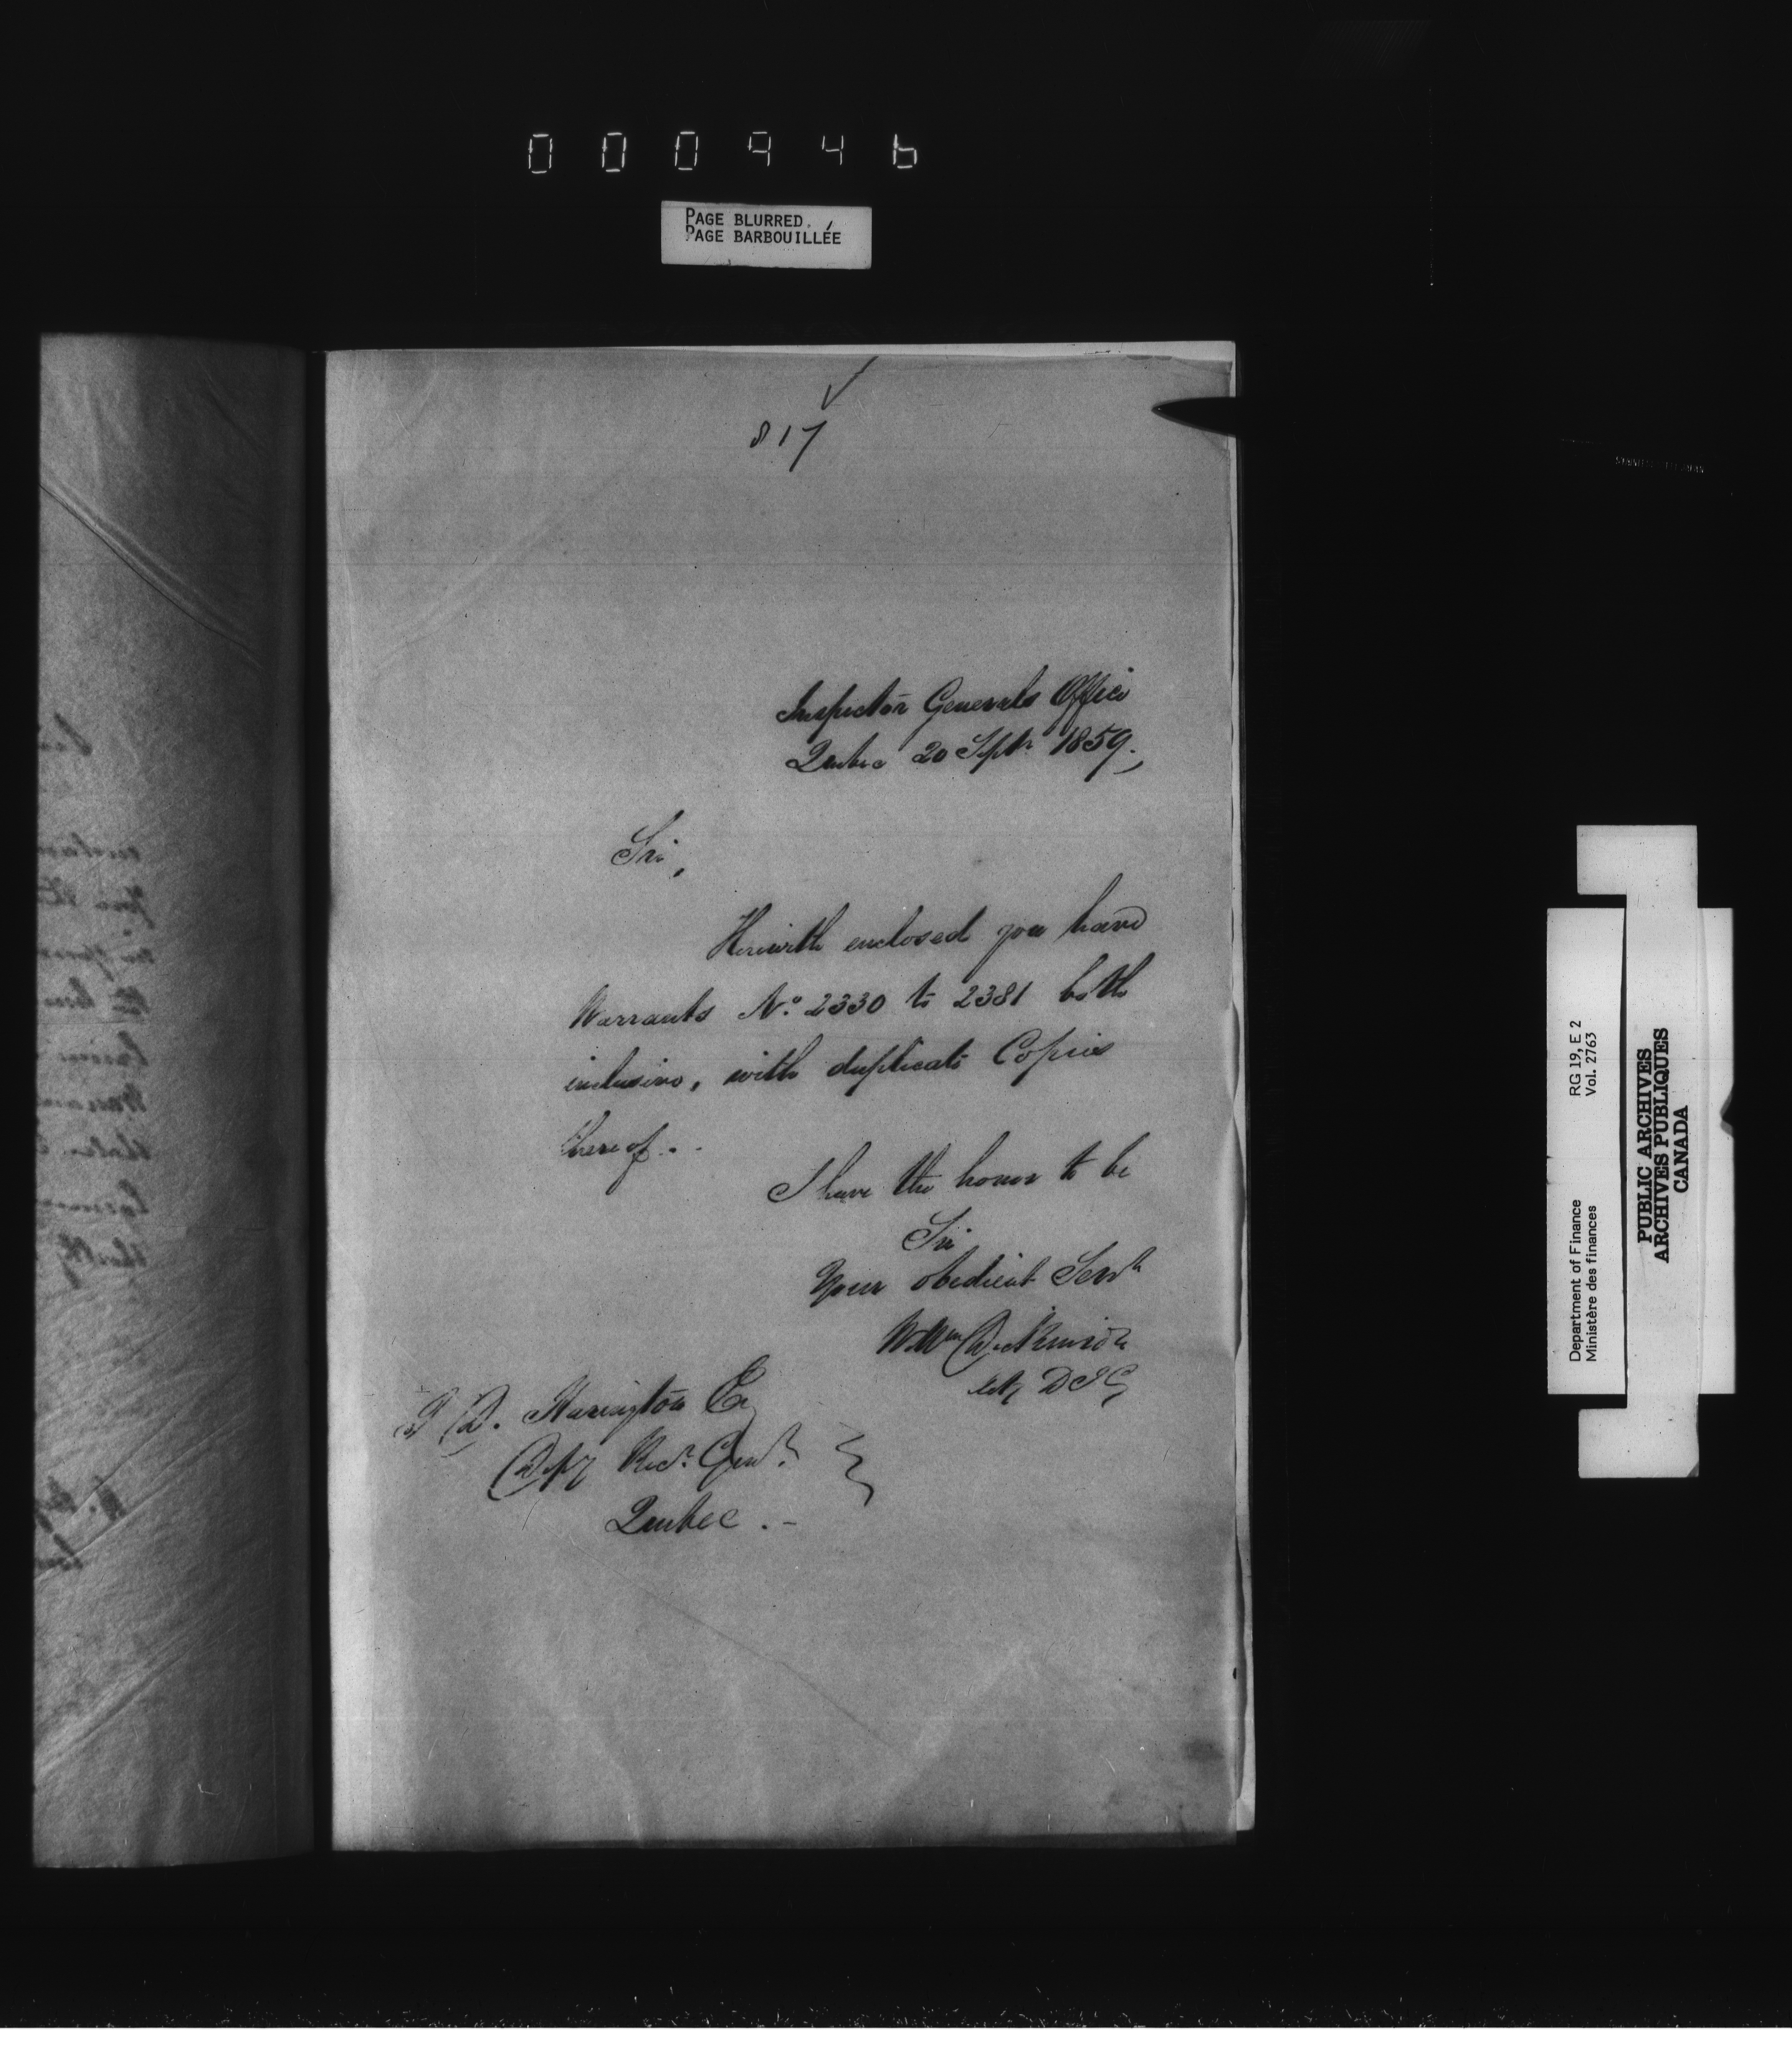 000946
PAGE BLURRED
PAGE BARBOUILLÉE
817
Inspector Generals Office
Quebec 20 Septr 1859.
Sir,
Herewith enclosed you have
Warrants No. 2330 to 2381 both
inclusive, with duplicate Copies
thereof..
I have the honor to be
Sir
Your obedient Servt
Wm Dickinson
D I G
T D. Harington Esq
Depy Recr. Genl.
Quebec.-
RG 19, E 2
Vol. 2763
Department of Finance
Ministère des finances
PUBLIC ARCHIVES
ARCHIVES PUBLIQUES
CANADA